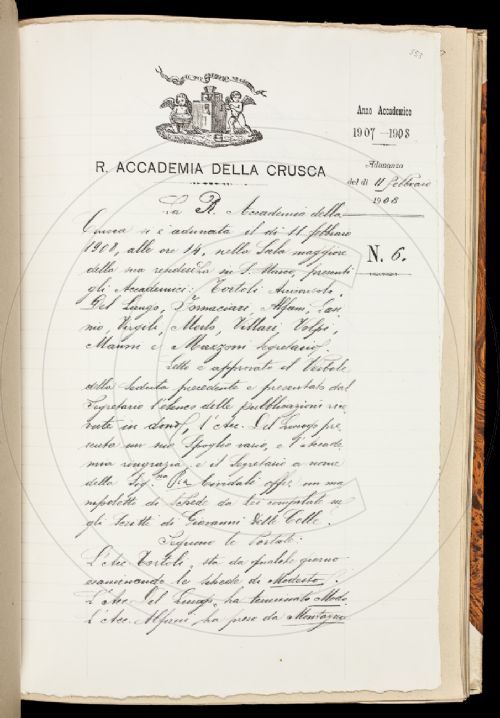 353
Anno Accademico
1907-1908
Adunanza
del dì 11 febbraio
1908
R. ACCADEMIA DELLA CRUSCA
N. 6.
La R. Accademia della
Crusca si è adunata il dì 11 febbraio
1908, alle ore 14, nella Sala maggiore
della sua residenza in S. Marco, presenti
gli Accademici: Tortoli Arciconsolo,
Del Lungo, Fornaciari, Alfani,
Virgili, Merlo, Villari, Volpi,
Mannu e Mazzoni Segretario.
Letto e approvato il Verbale
della Seduta precedente e presentato dal
Segretario l'elenco delle pubblicazioni
in dono, l'Acc. Del Lungo pre
senta un suo Spoglio vario, e l'Accade
mia ringrazia; e il Segretario a nome
della Sig.na Pia offre un ma
nipoletto di schede da lei compilate su
gli Scritti di Giovanni delle Celle.
Seguono le Tornate:
L'Acc. Tortoli, sta da qualche giorno
esaminando le schede di Modesto.
L'Acc. Del Lungo, ha terminato Modo.
L'Acc. Alfani, ha preso da Montagna